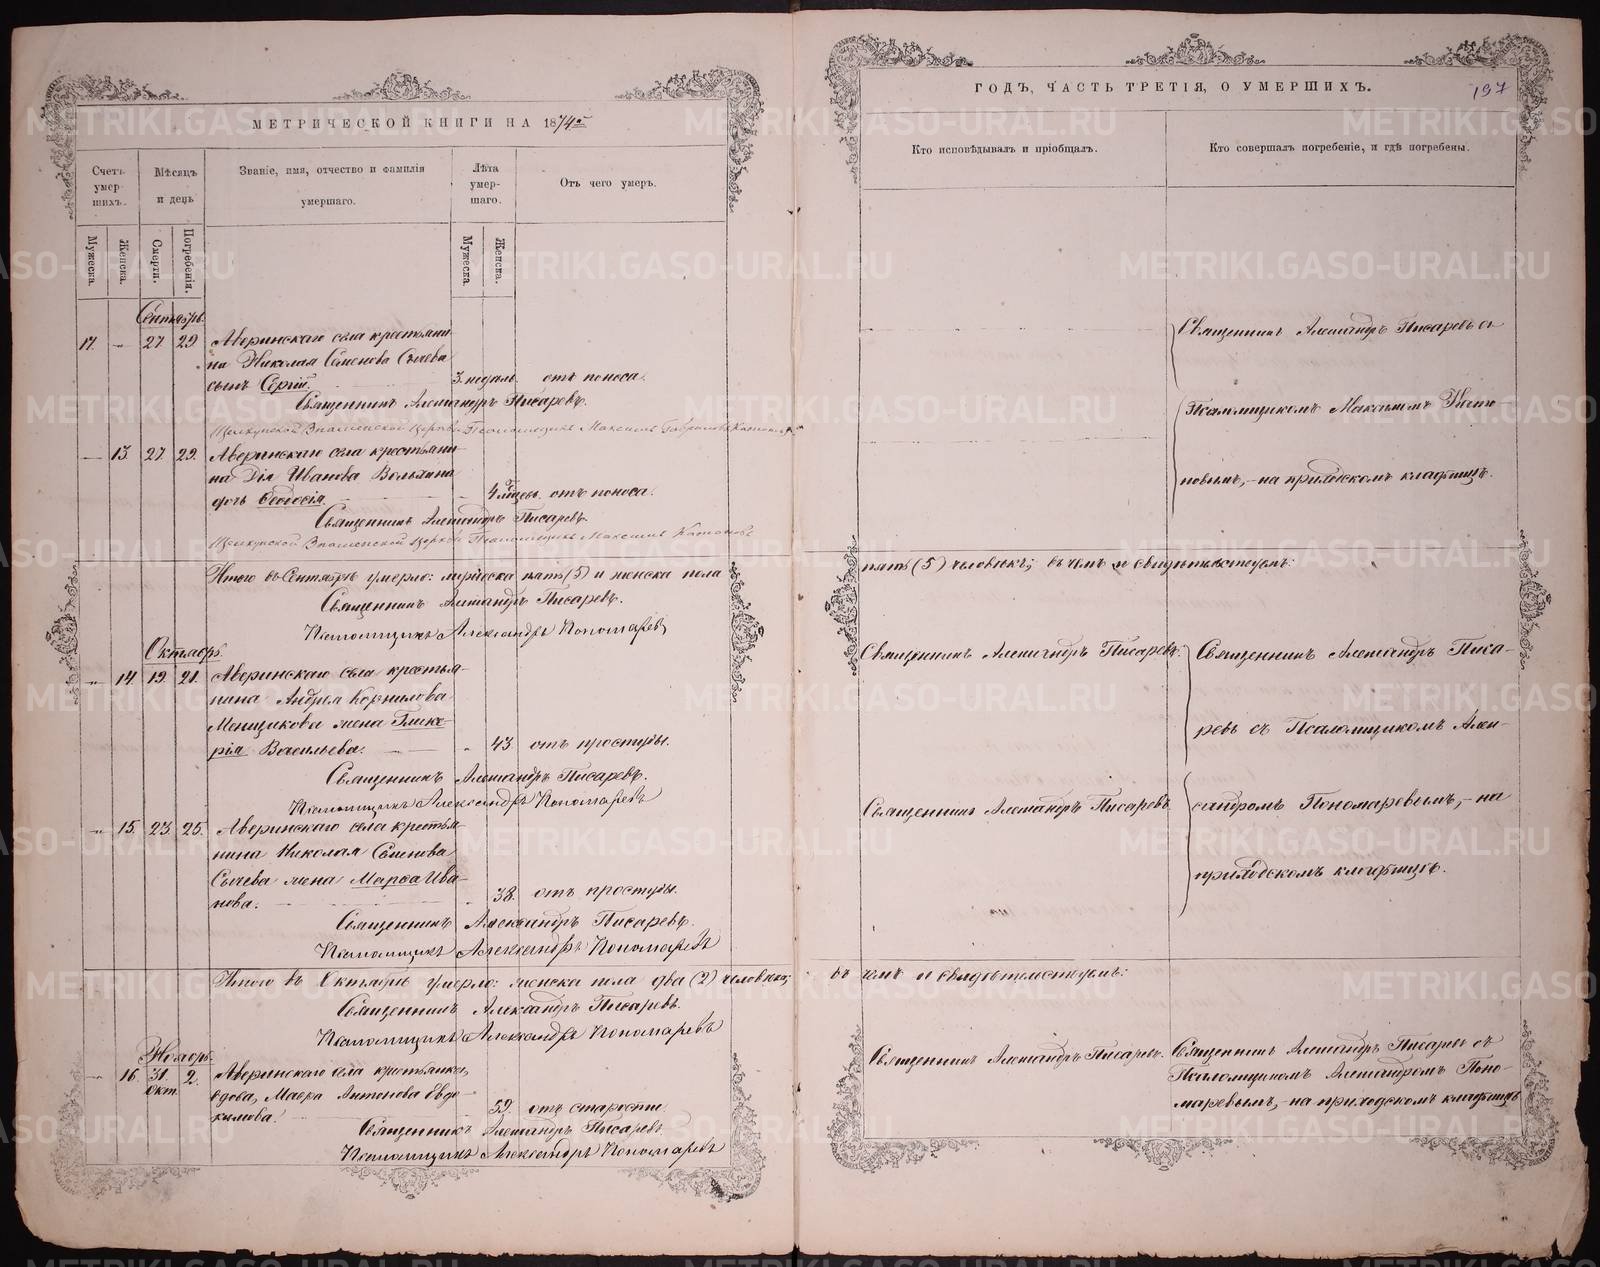 МЕТРИЧЕСКОЙ КНИГИ НА 1874й
Счетъ умер-шихъ.
Мѣсяцъ и день
Званіе, имя, отчество и фамилія умершаго.
Лѣта умер-шаго.
Отъ чего умеръ.
Мужеска.
Женска.
Смерти.
Погребенія.
Мужеска.
Женска.
Сентябрь.
17. 27 29 Аверинскаго села крестьяни-
на Николая Семенова Сычева
сынъ Сергій. 3. недѣль. отъ поноса.
Священникъ Александръ Писаревъ.
Псаломщикъ Максимъ
13. 27. 29. Аверинскаго села крестьяни-
на Дія Иванова
дочь Ѳеодосія. 4 мѣсец. отъ поноса.
Священникъ Александръ Писаревъ.
Псаломщикъ Максимъ
Итого въ Сентябрѣ умерло: мужеска пять (5) и женска пола
Священникъ Александръ Писаревъ.
Псаломщикъ Александръ Пономаревъ
Октябрь.
14. 19. 21. Аверинскаго села крестья-
нина Андрея Корнилова
Менщикова жена Глике-
рія Васильева. 43 отъ простуды.
Священникъ Александръ Писаревъ.
Псаломщикъ Александръ Пономаревъ
15. 23. 25. Аверинскаго села крестья-
нина Николая Семенова
Сычева жена Марѳа Ива-
нова. 38. отъ простуды.
Священникъ Александръ Писаревъ.
Псаломщикъ Александръ Пономаревъ
Итого въ Октябрѣ умерло: женска пола два (2) человека;
Священникъ Александръ Писаревъ.
Псаломщикъ Александръ Пономаревъ
Ноябрь.
16. 31. Окт. 2. Аверинскаго села крестьянка,
вдова, Мавра Антонова Евдо-
кимова. 59. отъ старости.
Священникъ Александръ Писаревъ
Псаломщикъ Александръ Пономаревъ
ГОДЪ, ЧАСТЬ ТРЕТІЯ, О УМЕРШИХЪ.
197
Кто исповѣдывалъ и пріобщалъ.
Кто совершалъ погребеніе, и гдѣ погребены.
Священникъ Александръ Писаревъ съ
Псаломщикомъ Максимомъ
новымъ,-на приходскомъ кладбищѣ.
пять (5) человекъ; въ чемъ и свидѣтельствуемъ:
Священникъ Александръ Писаревъ.
Священникъ Александръ Писа-
ревъ съ Псаломщикомъ Алек-
Священникъ Александръ Писаревъ.
сандромъ Пономаревымъ,-на
приходскомъ кладбищѣ.
въ чемъ и свидѣтельствуемъ:
Священникъ Александръ Писаревъ.
Священникъ Александръ Писаревъ съ
Псаломщикомъ Александромъ Поно-
маревымъ,-на приходскомъ кладбищѣ
METRIKI.GASO-URAL.RU